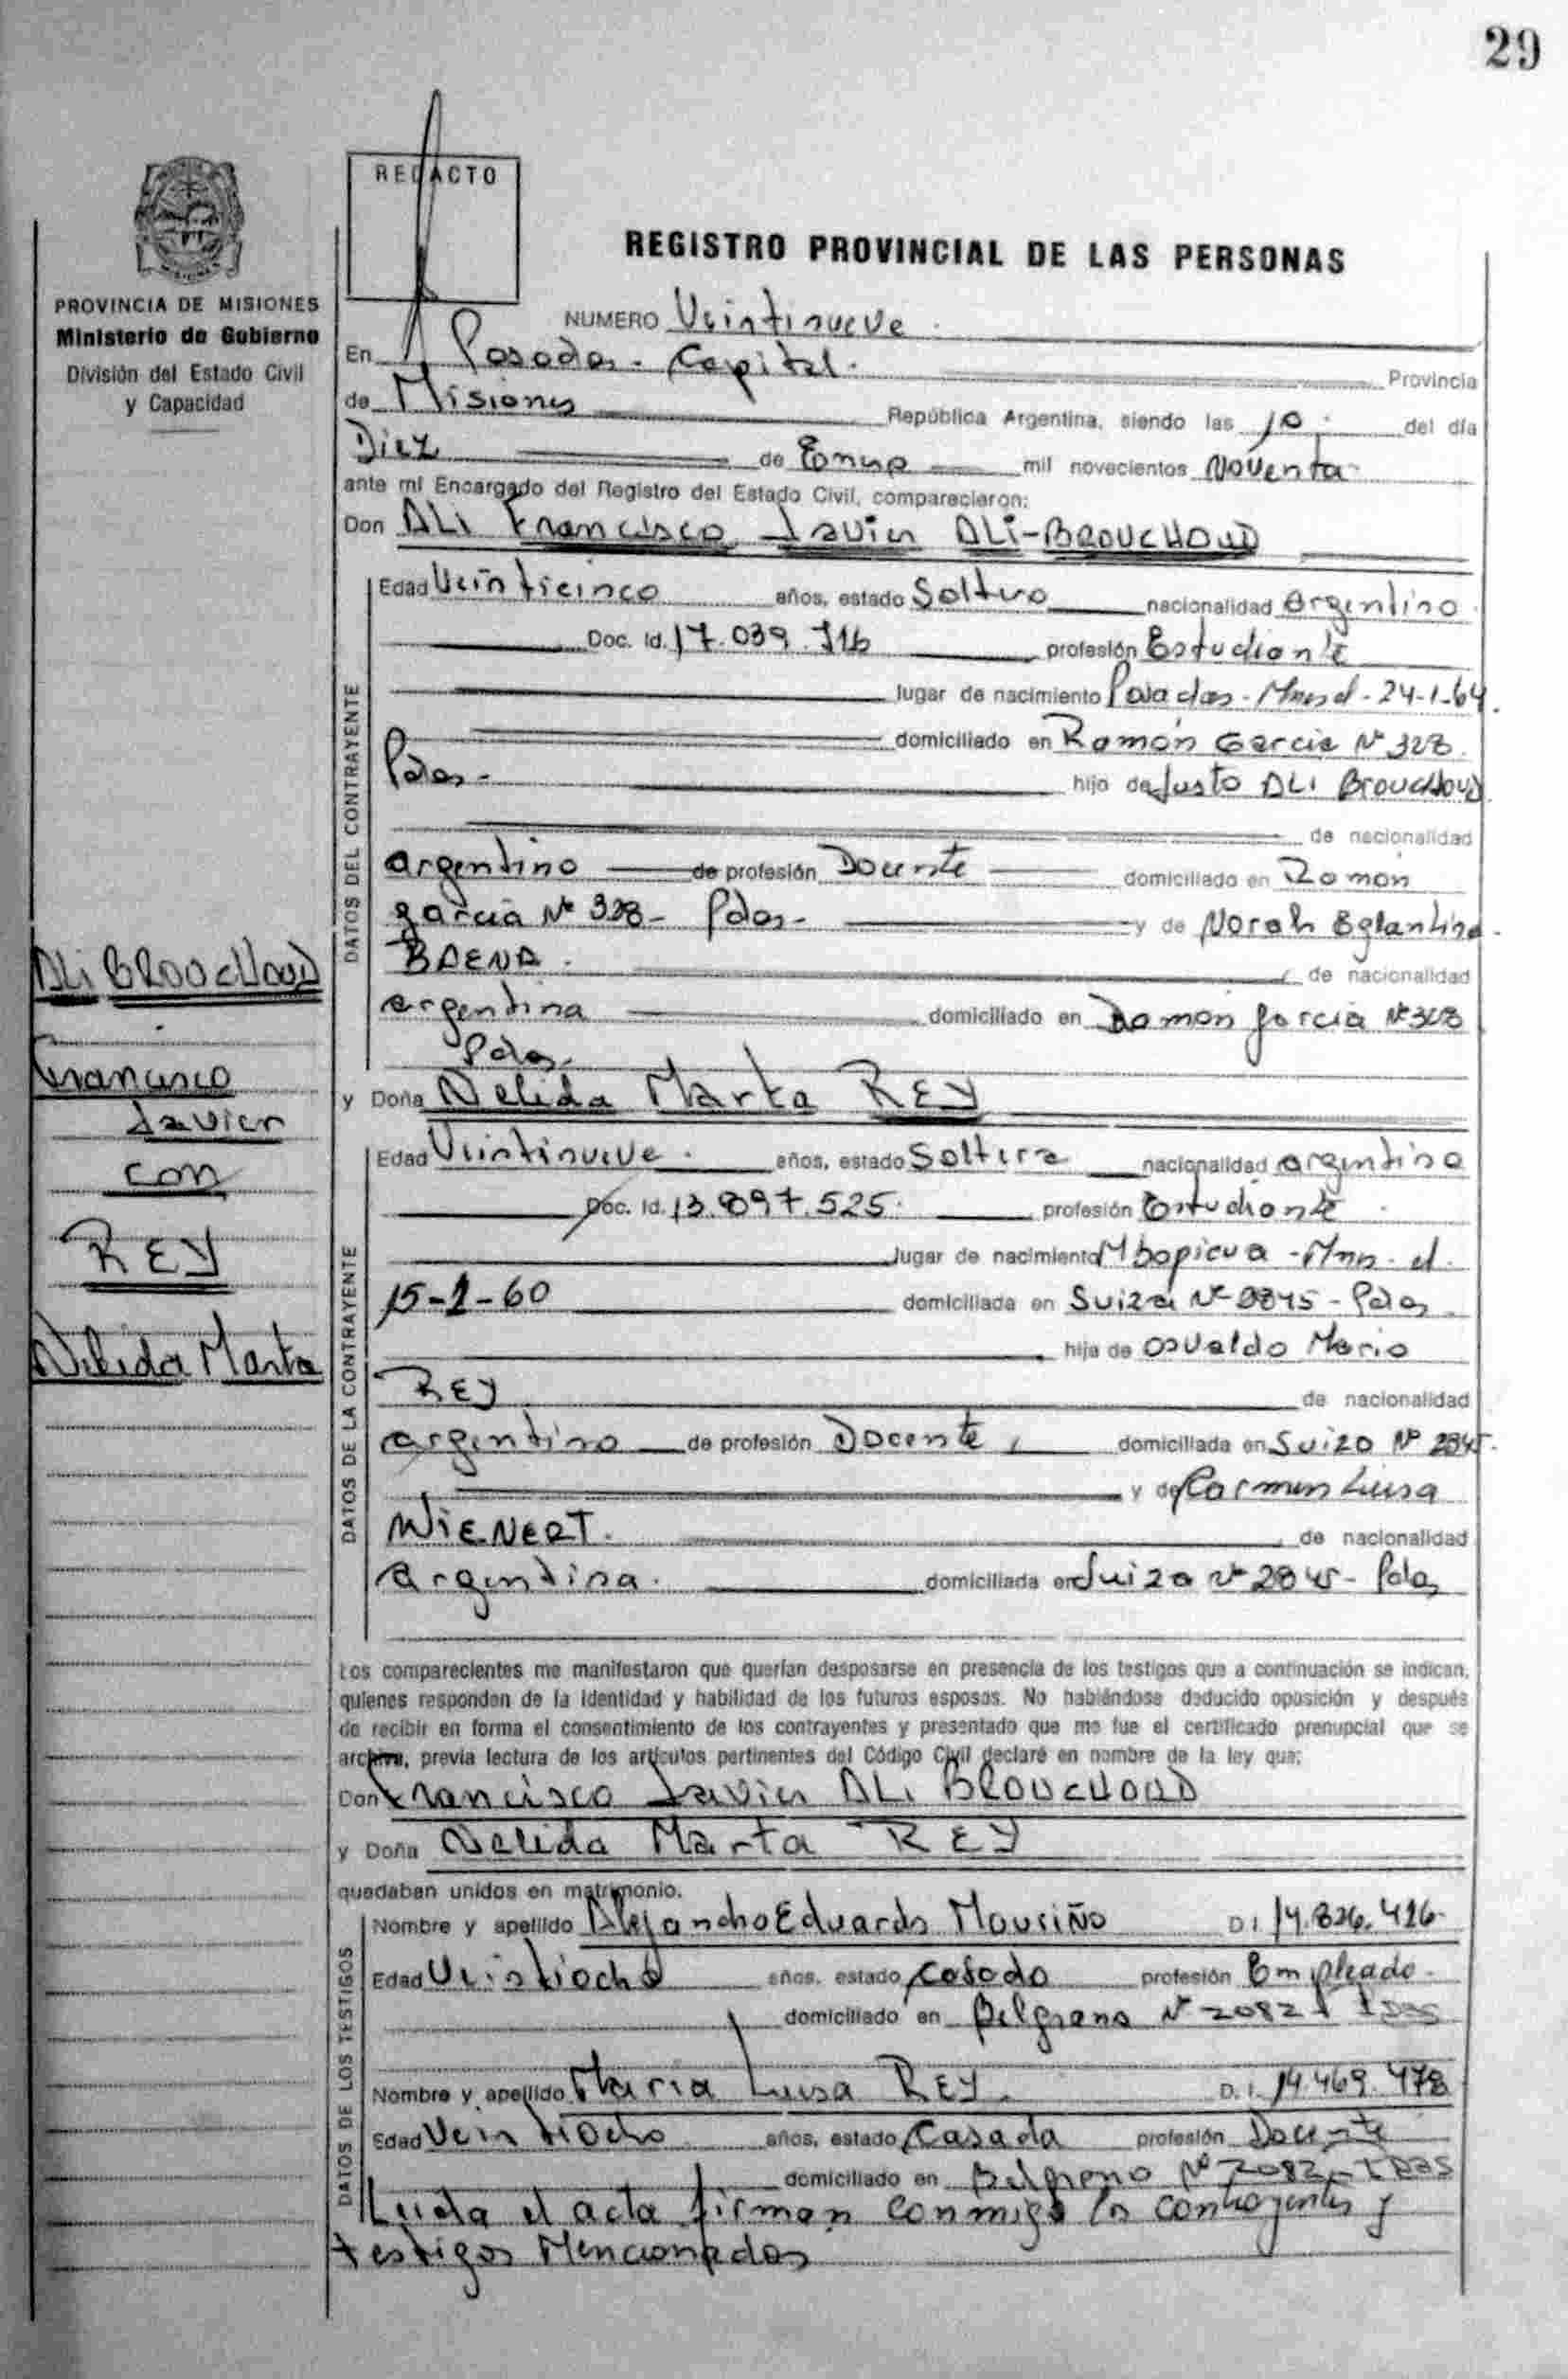 29
REDACTO
REGISTRO PROVINCIAL DE LAS PERSONAS
PROVINCIA DE MISIONES
Ministerio de Gobierno
División del Estado Civil
y Capacidad
NUMERO Veintinueve
En Posadas - Capital - Provincia
de Misiones República Argentina, siendo las 10 del día
Diez de Enero mil novecientos Noventa
ante mí Encargado del Registro del Estado Civil, comparecieron:
Don ALI Francisco Javier ALI-BROUCHOUD
DATOS DEL CONTRAYENTE
Edad Veinticinco años, estado Soltero nacionalidad Argentino
Doc. Id. 17.039.716 profesión Estudiante
lugar de nacimiento Posadas - Mnes el - 24-1-64
domiciliado en Ramón Garcia Nº 328
Pdas - hijo de Justo ALI BROUCHOUD
de nacionalidad
argentino de profesión Docente domiciliado en Ramón
garcia Nº 328 - Pdas - y de Norah Eglantina
BAENA . de nacionalidad
argentina domiciliado en Ramón garcia Nº 328
Pdas.
y Doña Nelida Marta REY
DATOS DE LA CONTRAYENTE
Edad Veintinueve . años, estado Soltera nacionalidad argentina
Doc. Id. 13.897.525 profesión Estudiante
lugar de nacimiento Mbopicua - Mnes. el
15-1-60 domiciliada en Suiza Nº 2845 - Pdas
hija de Osvaldo Mario
REY de nacionalidad
argentino de profesión Docente domiciliada en Suiza Nº 2845.
y de Carmen Luisa
WIENERT. de nacionalidad
argentina. domiciliada en Suiza Nº 2845 - Pdas
Los comparecientes me manifestaron que querían desposarse en presencia de los testigos que a continuación se indican,
quienes responden de la identidad y habilidad de los futuros esposos. No habiéndose deducido oposición y después
de recibir en forma el consentimiento de los contrayentes y presentado que me fue el certificado prenupcial que se
archiva, previa lectura de los artículos pertinentes del Código Civil declaré en nombre de la ley que:
Don Francisco Javier ALI BROUCHOUD
y Doña Nelida Marta REY
quedaban unidos en matrimonio.
DATOS DE LOS TESTIGOS
Nombre y apellido Alejandro Eduardo Mouriño D I 14.826.426
Edad Veintiocho años, estado Casado profesión Empleado
domiciliado en Belgrano Nº 2082
Nombre y apellido Maria Luisa REY D. I. 14.469.478
Edad Veintiocho años, estado Casada profesión Docente
domiciliado en Belgrano Nº 2082 - PDAS
Leida el acta firman conmigo los contrayentes y
testigos Mencionados
ALI BROUCHOUD
Francisco
Javier
con
REY
Nelida Marta